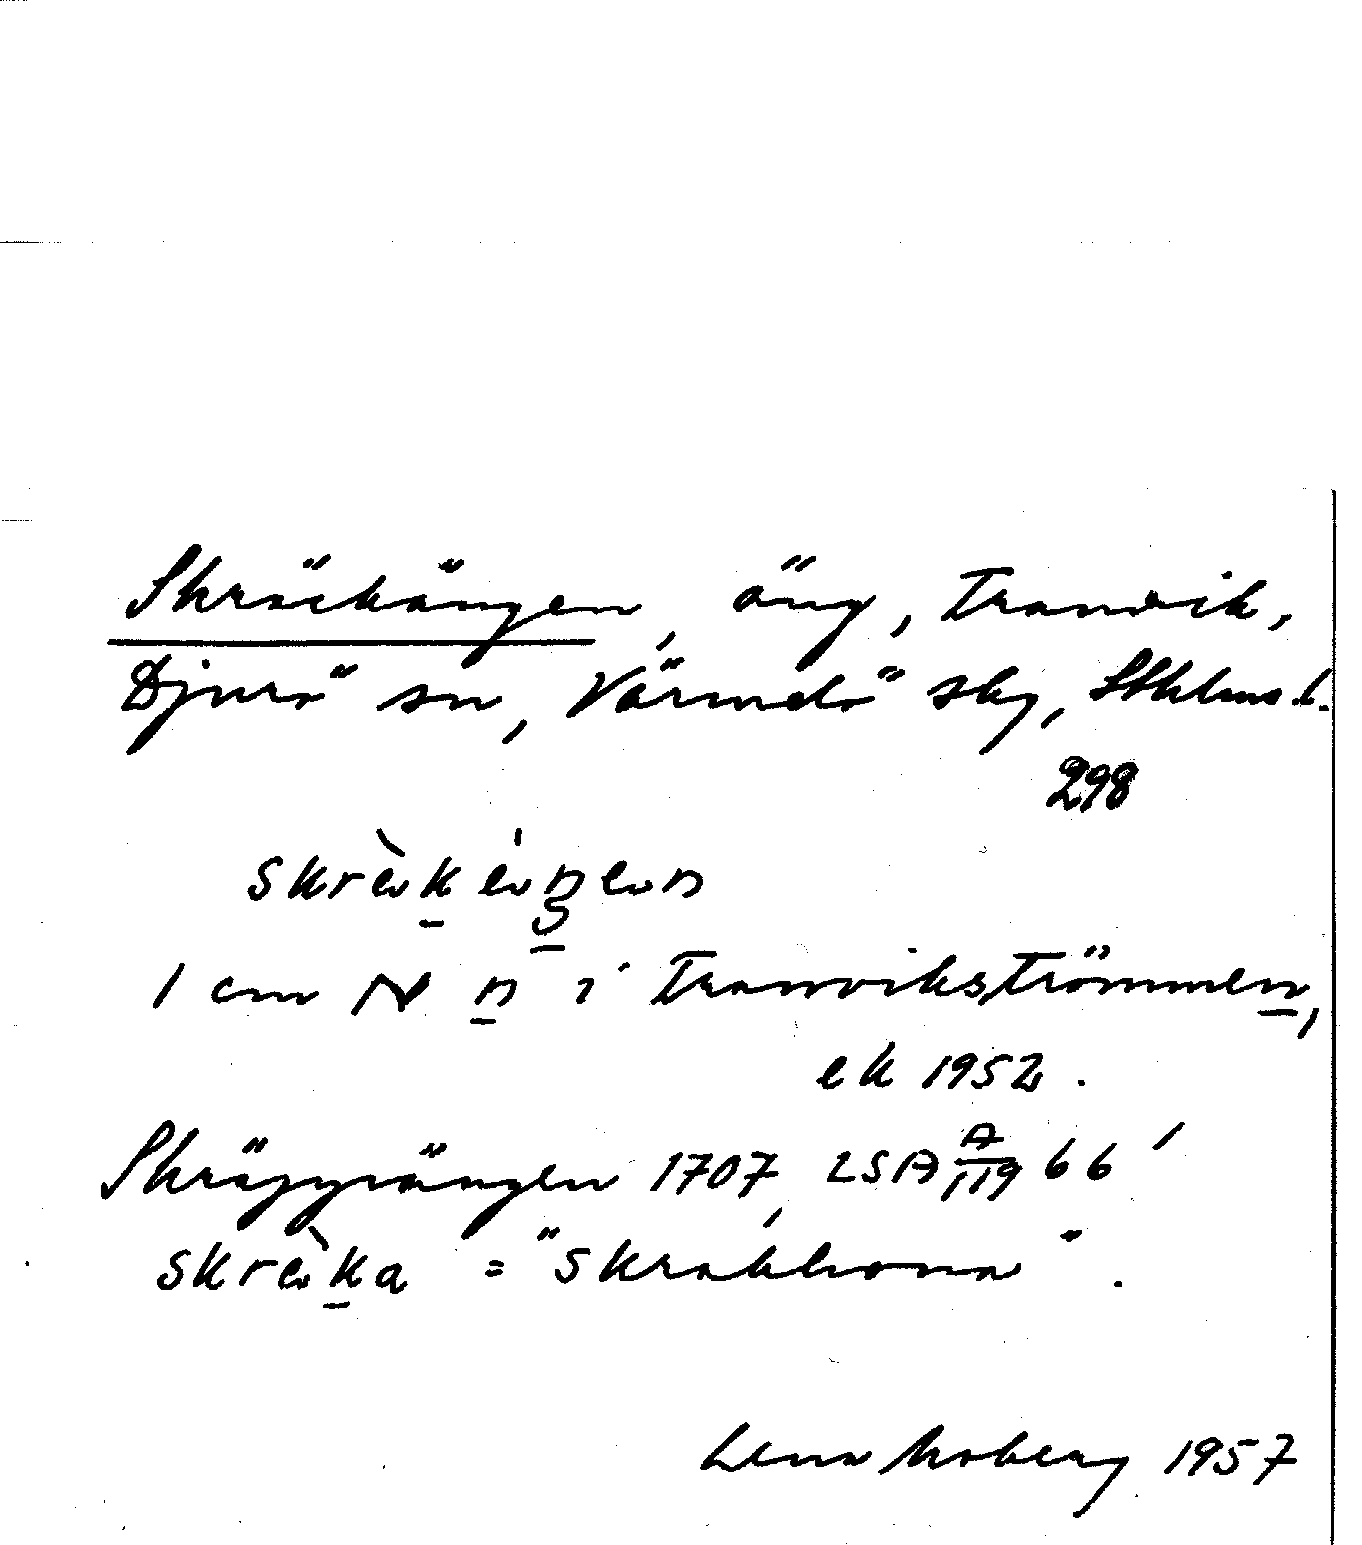 Skräckängen, äng, Tranvik,
Djurö sn, Värmdö skg, Sthlms l.
298
1 cm N n i Tranvikströmmen,
ek 1952.
Skräpprängen 1707, LSA A/119 66
= "skrakhona".
Lena Moberg 1957